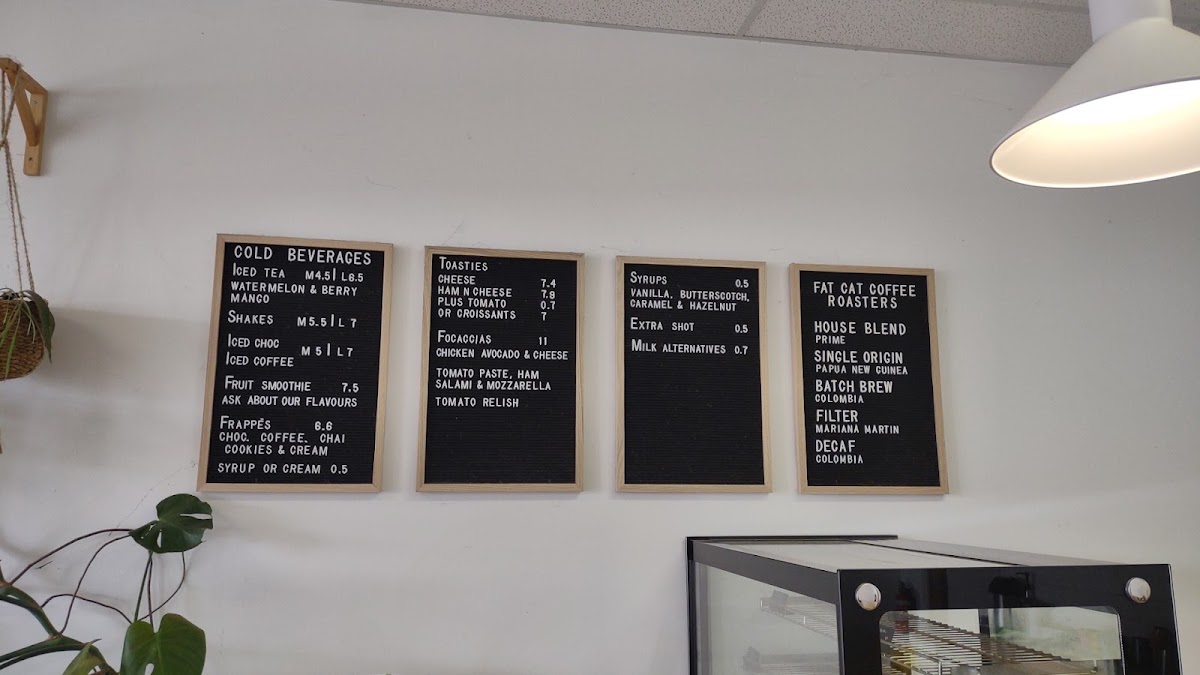 COLD BEVERAGES
ICED TEA M4.5| L6.5
WATERMELON & BERRY
MANGO
SHAKES M5.5| L 7
ICED CHOC
M 5 | L7
ICED COFFEE
FRUIT SMOOTHIE 7.5
ASK ABOUT OUR FLAVOURS
FRAPPÉS 6.6
CHOC. COFFEE. CHAI
COOKIES & CREAM
SYRUP OR CREAM 0.5
TOASTIES
CHEESE 7.4
HAM N CHEESE 7.8
PLUS TOMATO 0.7
OR CROISSANTS 7
FOCACCIAS 11
CHICKEN AVOCADO & CHEESE
TOMATO PASTE, HAM
SALAMI & MOZZARELLA
TOMATO RELISH
SYRUPS 0.5
VANILLA, BUTTERSCOTCH,
CARAMEL & HAZELNUT
EXTRA SHOT 0.5
MILK ALTERNATIVES 0.7
FAT CAT COFFEE
ROASTERS
HOUSE BLEND
PRIME
SINGLE ORIGIN
PAPUA NEW GUINEA
BATCH BREW
COLOMBIA
FILTER
MARIANA MARTIN
DECAF
COLOMBIA